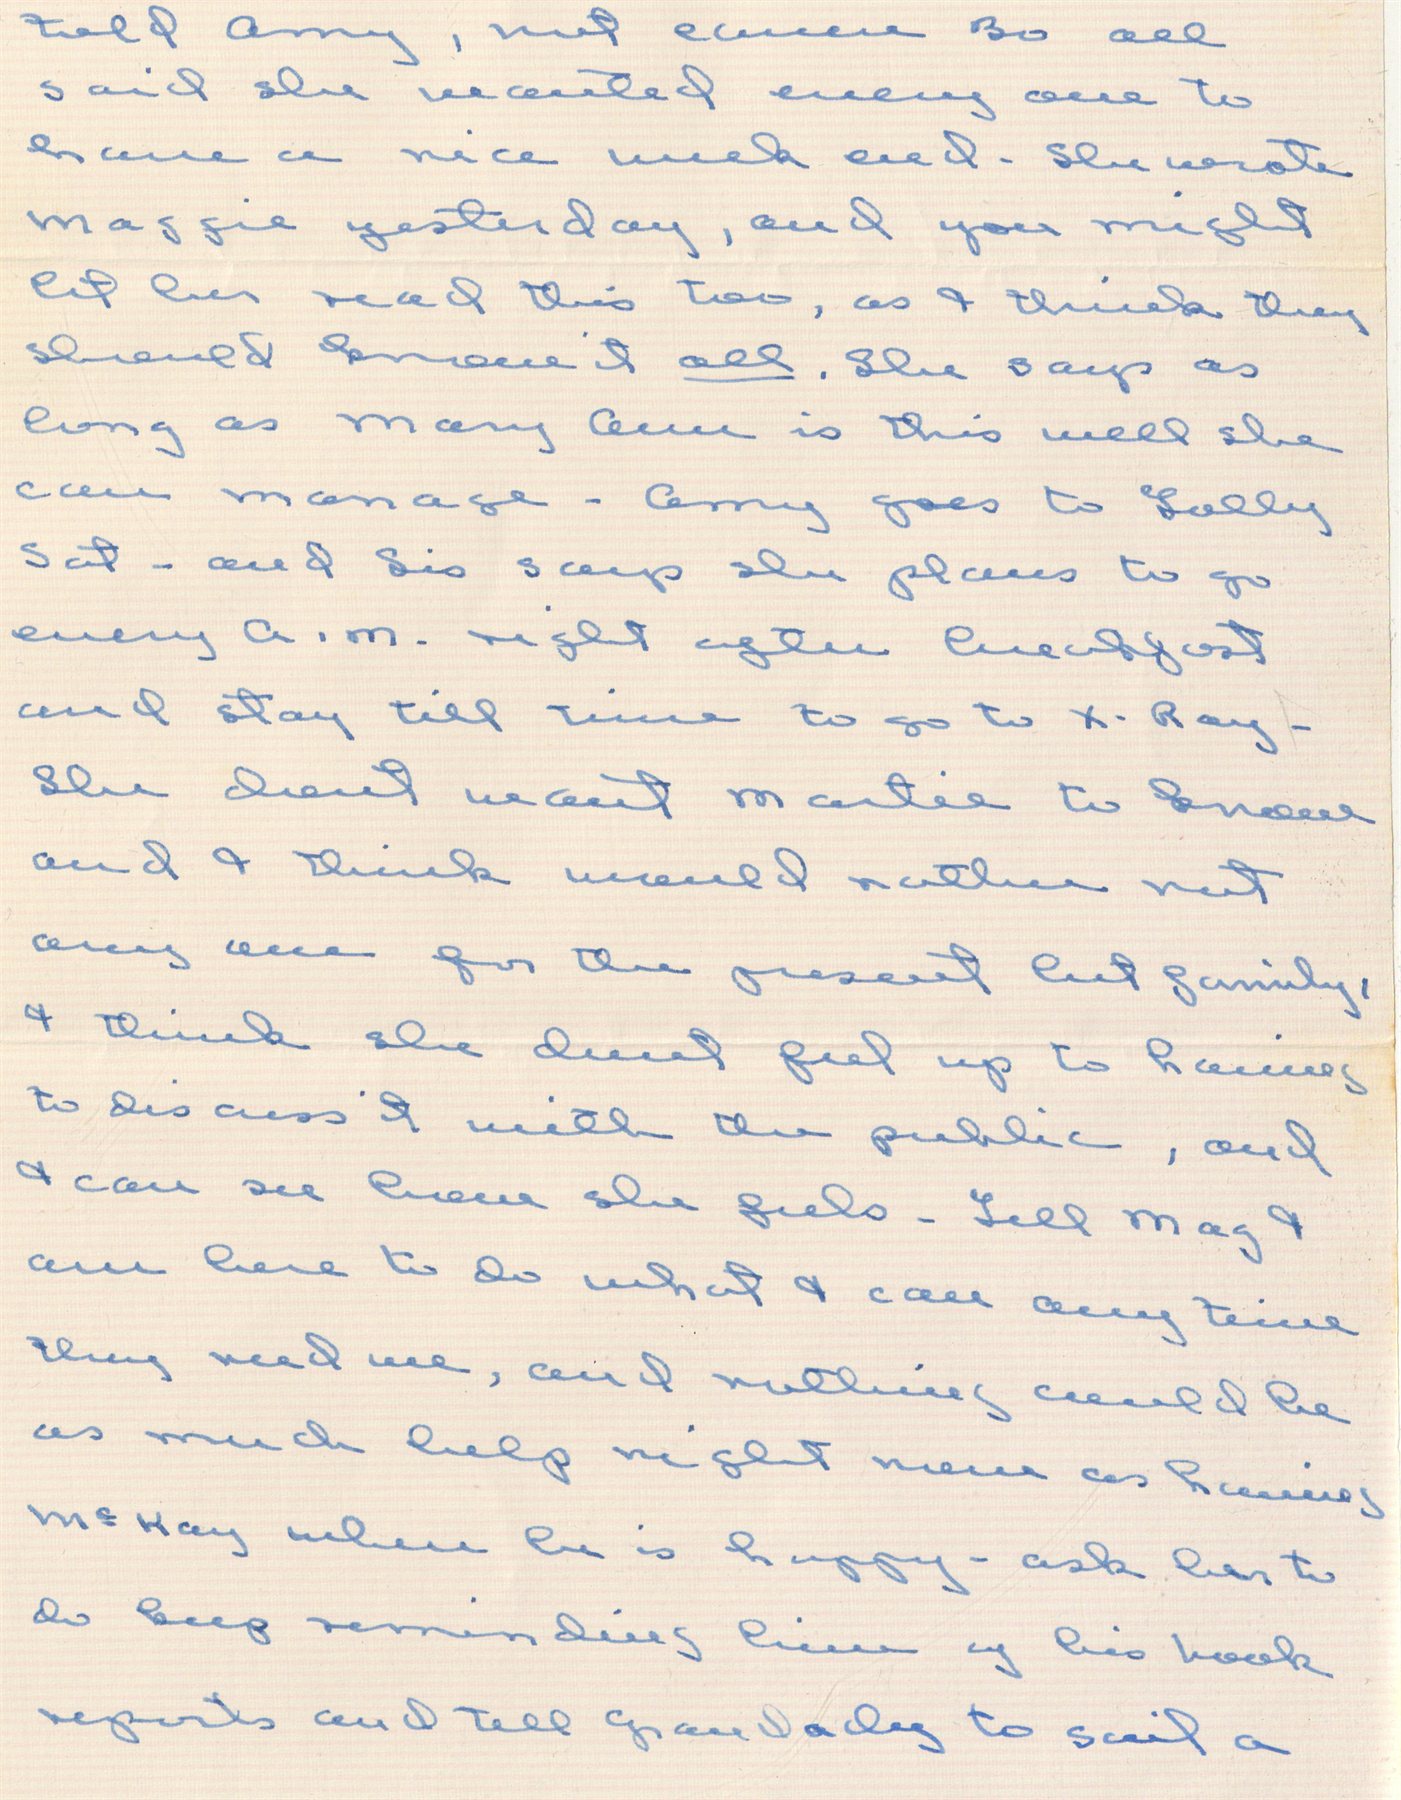 told Amy, not even Bo all
said she wanted every one to
have a nice week end - She wrote
Maggie yesterday, and you might
let her read this too, as I think they
should know it all. She says as
long as Mary Ann is this well she
can manage - Amy goes to Golly
Sat - and Sis says she plans to go
every A.M. right after breakfast
and stay till time to go to X-Ray -
She dont want Martie to know
and I think would rather not
any one for the present but family,
I think she dont feel up to having
to discuss it with the public, and
I can see how she feels - Tell Mag I
am here to do what I can any time
they need me, and nothing could be
as much help right now as having
McKay where he is happy - ask her to
do keep reminding him of his book
reports and tell Grandady to sail a